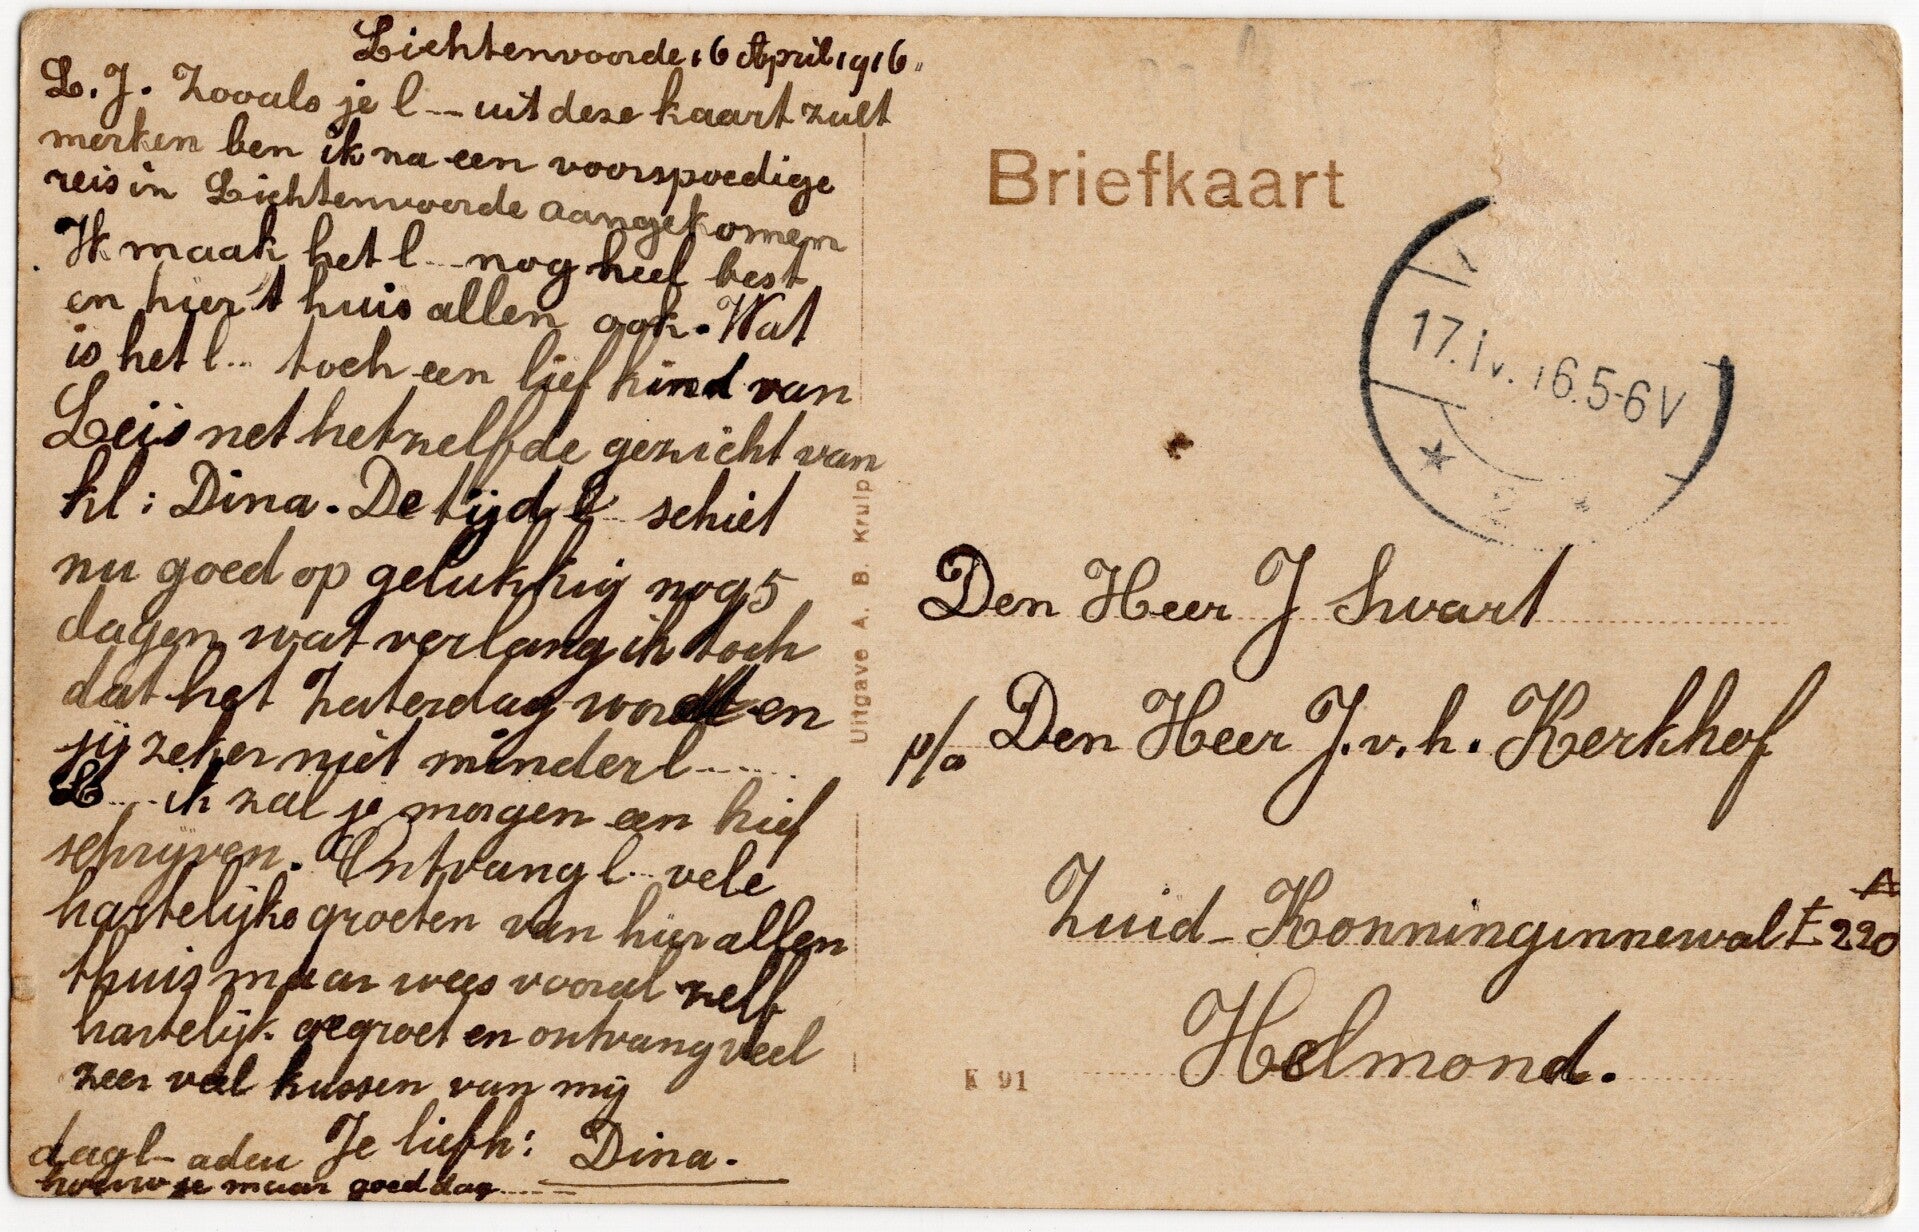 Lichtenvoorde 16 April 1916.
L. J. Zooals je l--- uit deze kaart zult
merken ben ik na een voorspoedige
reis in Lichtenvoorde aangekomen
Ik maak het l --- nog heel best
en hier t huis allen ook. Wat
is het l... toch een lief kind van
Leis net hetzelfde gezicht van
kl: Dina. De tijd l... schiet
nu goed op gelukkig nog 5
dagen wat verlang ik toch
dat het Zaterdag wordt en
jij zeker niet minder l.......
L.... ik zal je morgen een brief
schrijven. Ontvang l... vele
hartelijke groeten van hier allen
thuis maar wees vooral zelf
hartelijk gegroet en ontvang veel
zeer veel kussen van mij
Je liefh: Dina.
dag l- adeu
houw je maar goed dag......
Uitgave A. B. Kruip
Briefkaart
17.IV.16.5-6V
2
Den Heer J Swart
p/a Den Heer J. v. h. Kerkhof
Zuid-Konninginnewal E 220
Helmond.
K 91